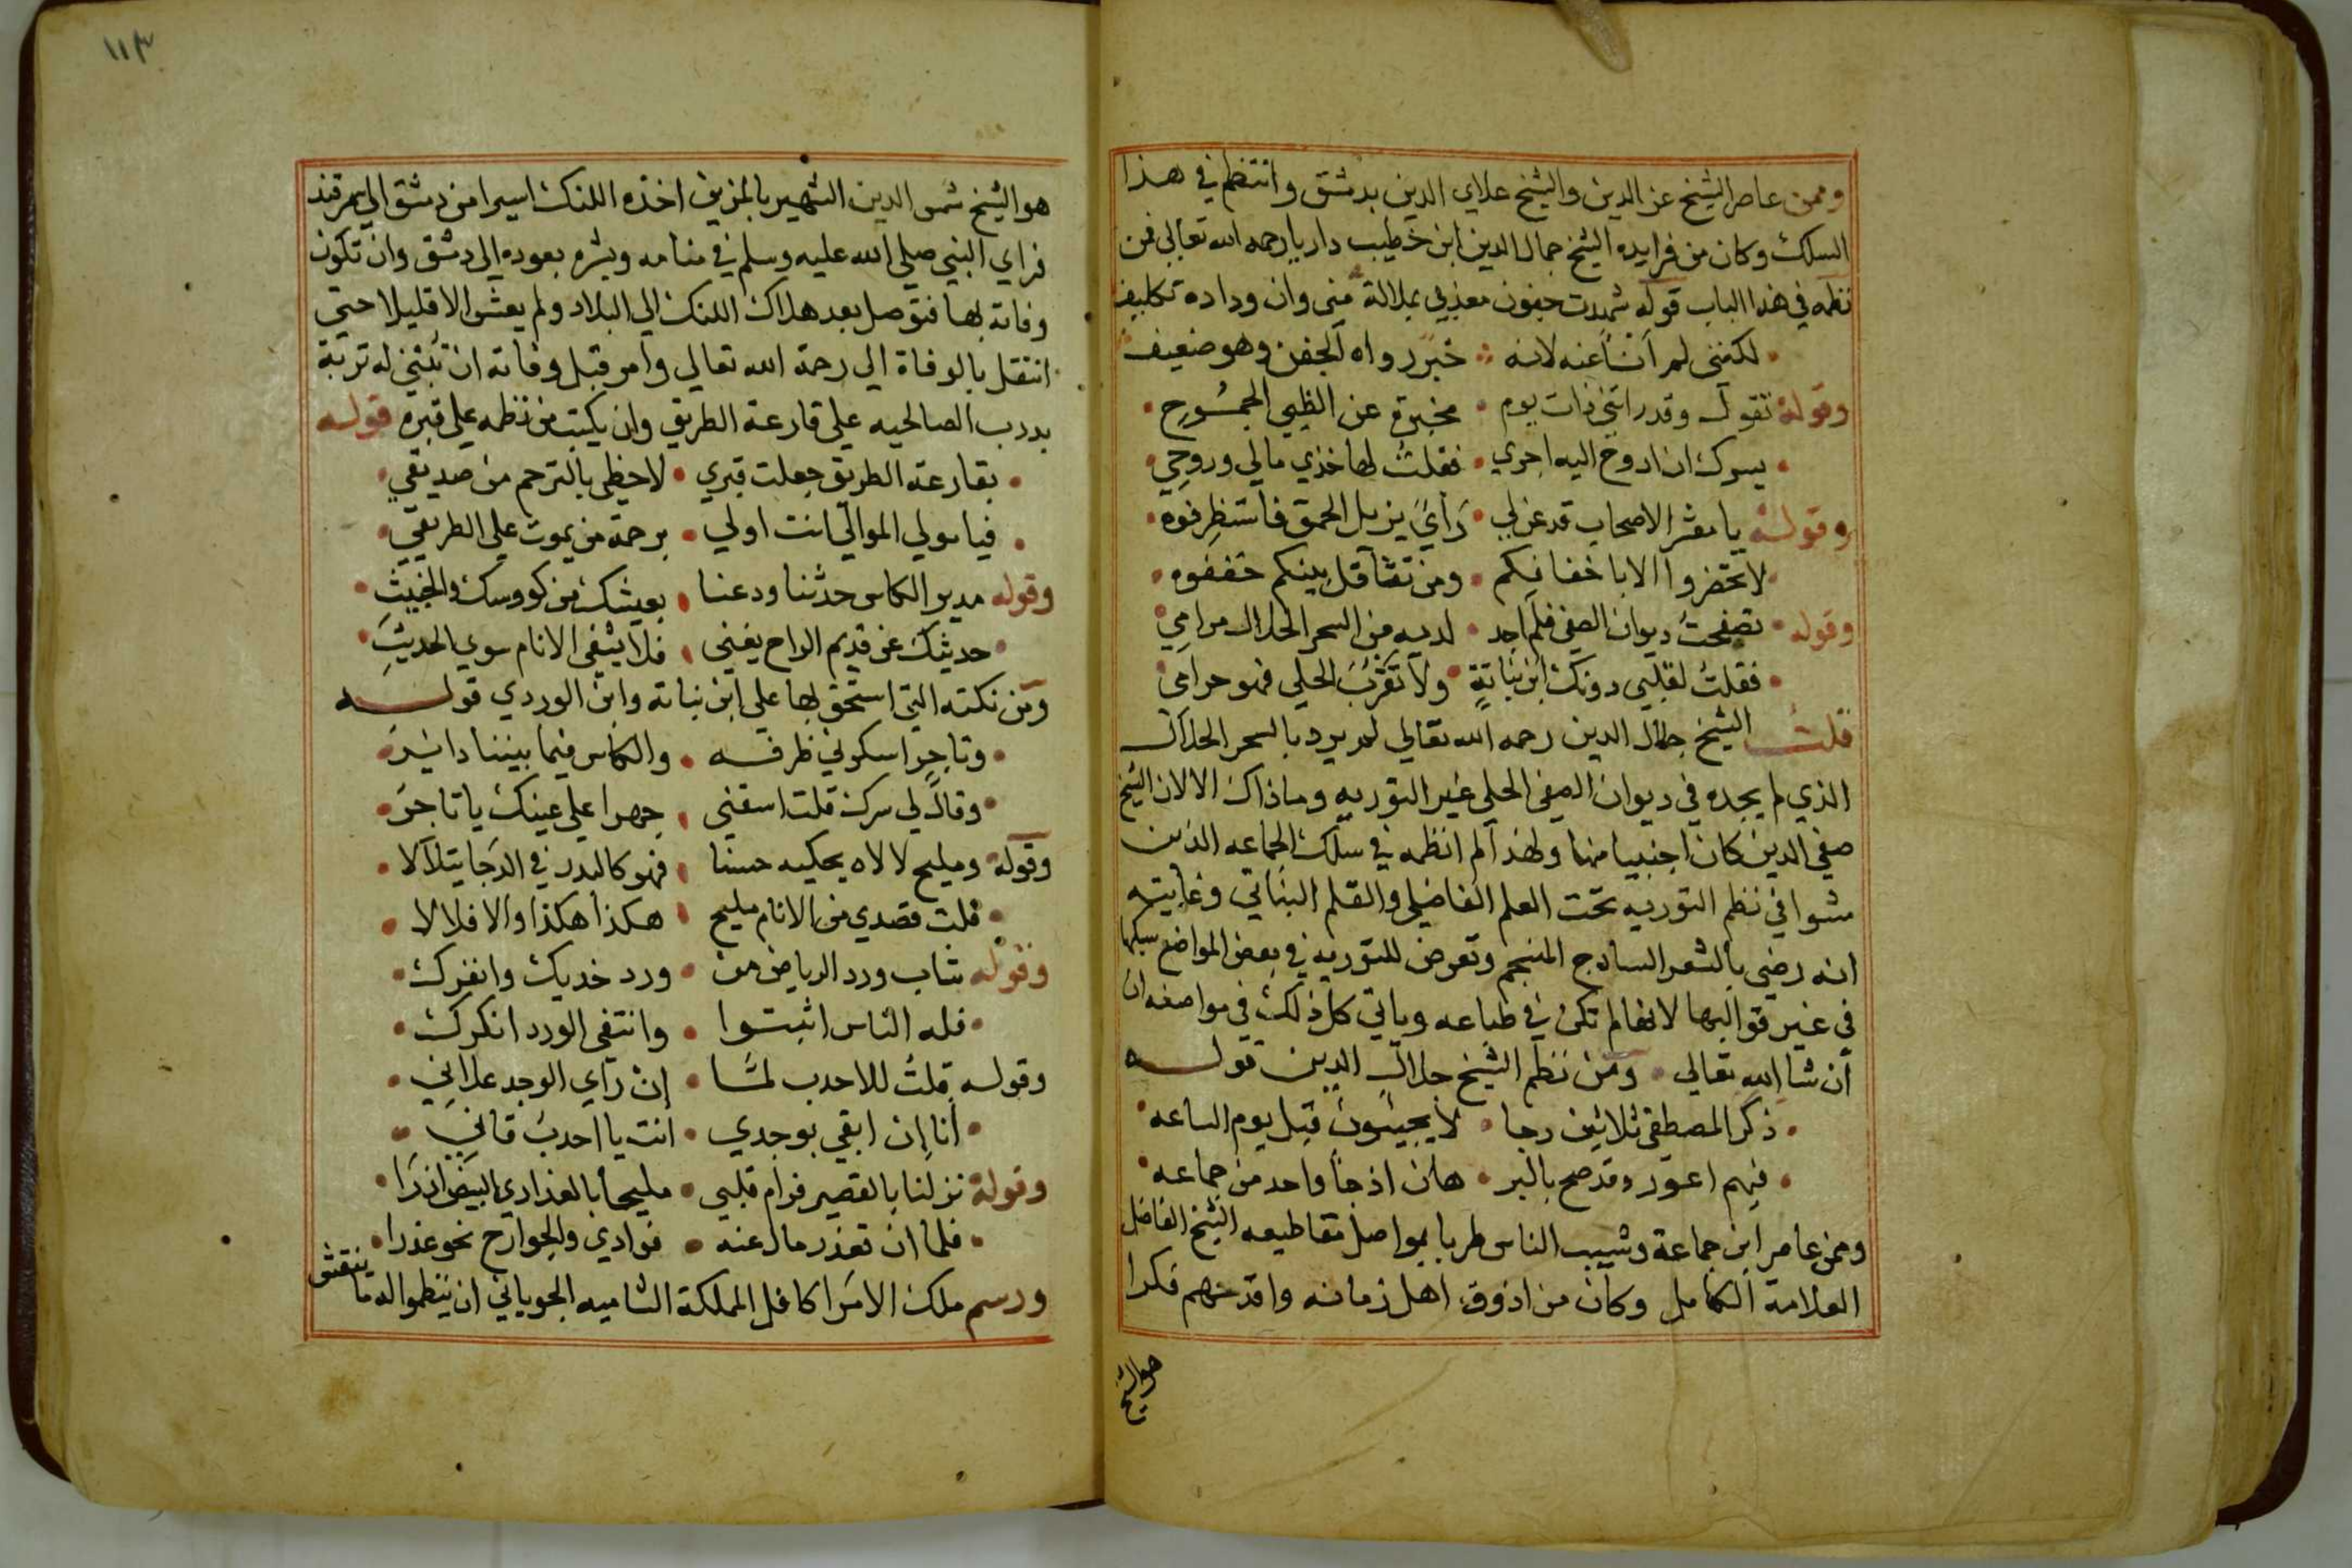 وممن عاصر الشيخ عز الدين والشيخ علاي الدين بدمشق وانتظم في هذا
السلك وكان من فرايده الشيخ جمال الدين ابن خطيب داريا رحمه الله تعالى فمن
نظمه في هذا الباب قوله شهدت جفون معذبي بملالة مني وان وداده تكليف
لكنني لم أنأ عنه لانه خبر رواه الجفن وهو ضعيف
وقوله تقول وقد راتني ذات يوم مخبرة عن الظبي الجموح
يسرك ان اروح اليه اجري فقلت لها خذي مالي وروحي
وقوله يا معشر الاصحاب قد عن لي رأي يزيل الحمق فاستظرفوه
لا تحضروا الا باخفافكم ومن تثاقل بينكم خففوه
وقوله تصفحت ديوان الصفي فلم اجد لديه من السحر الحلال مرامي
فقلت لقلبي دونك ابن نباتة ولا تقرب الحلي فهو حرامي
قلت الشيخ جلال الدين رحمه الله تعالي لم يرد بالسحر الحلال
الذي لم يجده في ديوان الصفي الحلي غير التوريه وما ذاك الا لان الشيخ
صفي الدين كان اجنبيا منها ولهذا لم انظمه في سلك الجماعه الذين
مشوا في نظم التوريه تحت العلم الفاضلي والقلم النباتي وغايته
انه رضي بالشعر الساذج المنسجم وتعرض للتوريه في بعض المواضع سبكها
في غير قوالبها لانها لم تكن في طباعه وياتي كل ذلك في مواضعه ان
ان شا الله تعالي ومن نظم الشيخ جلال الدين قوله
ذكر المصطفى ثلاثين رجا لا يجيئون قبل يوم الساعه
فيهم اعور وقد صح بالبر هان اذ جا واحد من جماعه
وممن عاصر ابن جماعة وشبب الناس طربا بمواصل مقاطيعه الشيخ الفاضل
العلامة الكامل وكان من اذوق اهل زمانه واقدحهم فكرا
هو الشيخ
١١٣
هو الشيخ شمس الدين الشهير بالمزين اخذه اللنك اسيرا من دمشق الي سمرقند
فراي النبي صلي الله عليه وسلم في منامه وبشره بعوده الى دمشق وان تكون
وفاته بها فتوصل بعد هلاك اللنك الي البلاد ولم يعش الا قليلا حتي
انتقل بالوفاة الي رحمة الله تعالي وامر قبل وفاته ان تبتني له تربة
بدرب الصالحيه علي قارعة الطريق وان يكتب من نظمه علي قبره قوله
بقارعة الطريق جعلت قبري لاحظى بالترحم من صديقي
فيا مولي الموالي انت اولي برحمة من يموت علي الطريقي
وقوله مدير الكاس حدثنا ودعنا بعيشك من كووسك والخبيث
حديثك عن قديم الراح يغني فلا يشفى الانام سوي الحديث
ومن نكته التي استحق بها علي ابن نباته وابن الوردي قوله
وتاجر اسكرني ظرفه والكاس فيما بيننا داير
وقال لي سرك قلت اسقني جهرا علي عينك يا تاجر
وقوله ومليح لالاه يحكيه حسنا فهو كالبدر في الدجا يتلالا
قلت قصدي من الانام مليح هكذا هكذا والا فلا لا
وقوله شاب ورد الرياض من ورد خديك وانفرك
فله الناس اثبتوا وانتفى الورد انكرك
وقوله قلت للاحدب لما ان راي الوجد علاني
أنا ان ابقي بوجدي انت يا احدب قاني
وقوله نزلنا بالقصير فرام قلبي مليحا بالعذاري البيض ازرا
فلما ان تعذر مال عنه فوادي والجوارح نحو عذرا
ورسم ملك الامرا كافل المملكة الشاميه الجوباني ان ينظموا له ما ينقش